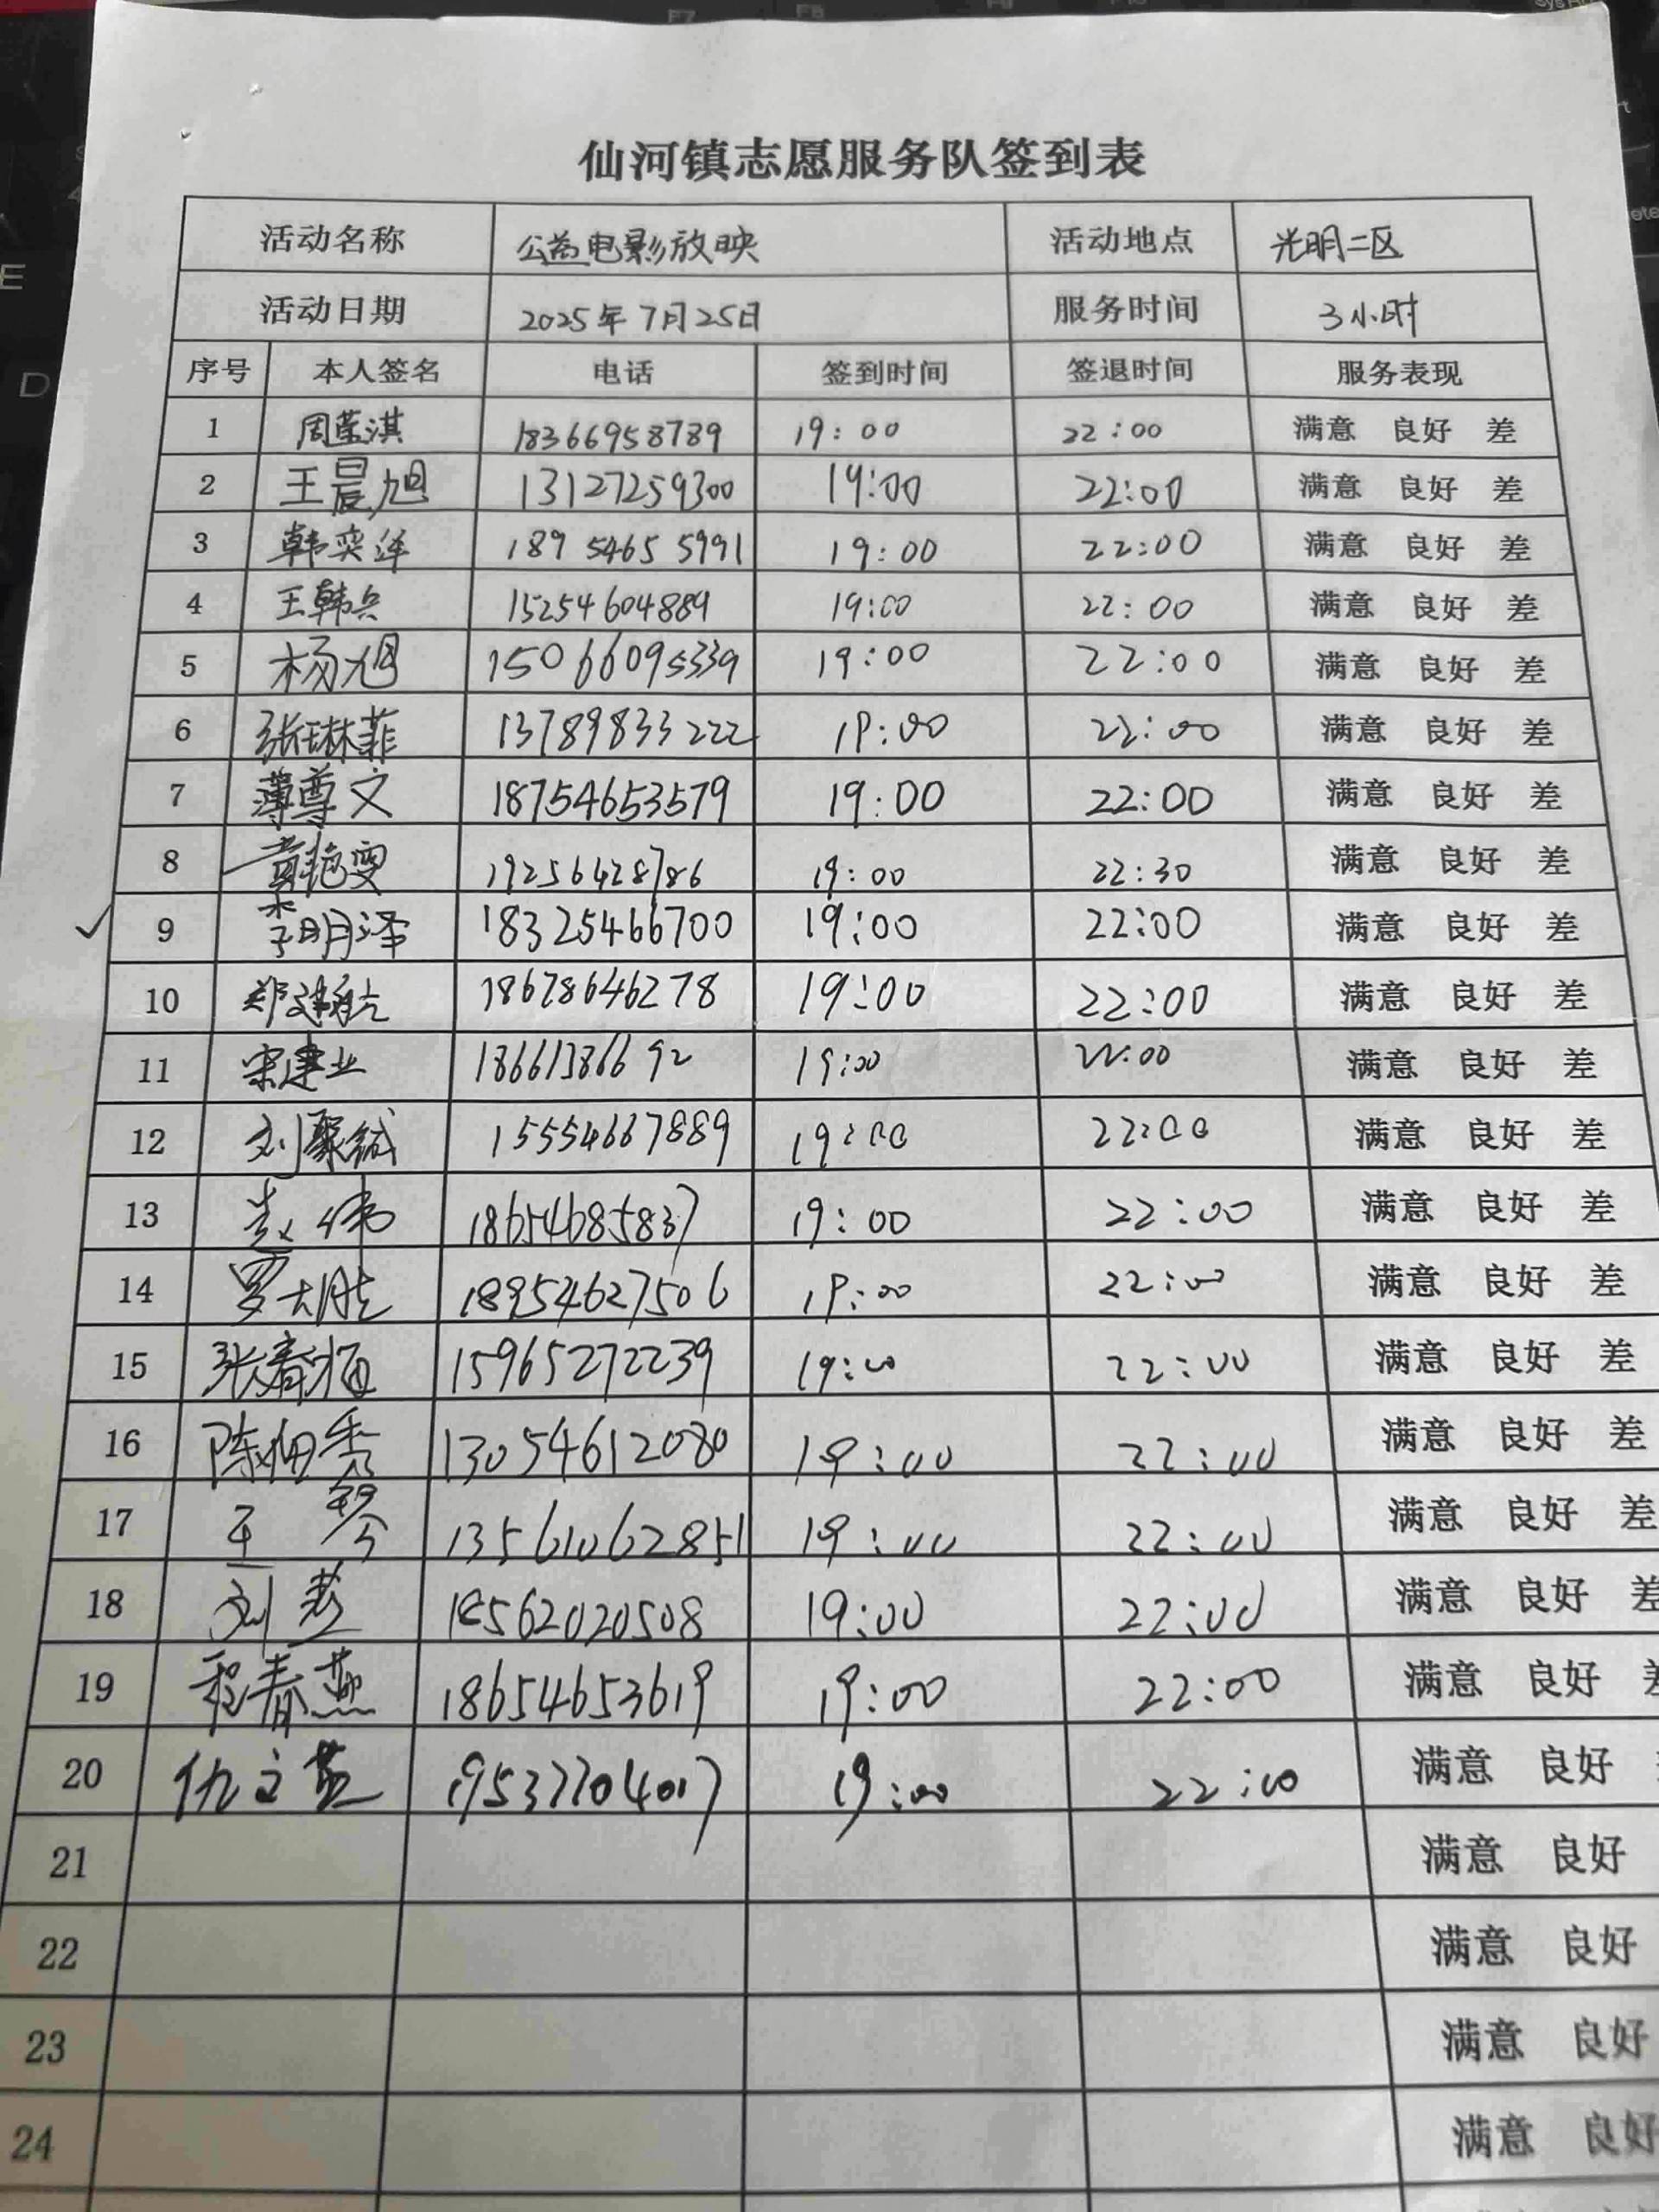 仙河镇志愿服务队签到表
活动名称 公益电影放映 活动地点 光明二区
活动日期 2025年7月25日 服务时间 3小时
序号 本人签名 电话 签到时间 签退时间 服务表现
1 周荣淇 18366958789 19:00 22:00 满意 良好 差
2 王晨旭 13127259300 19:00 22:00 满意 良好 差
3 韩奕泽 189 5465 5991 19:00 22:00 满意 良好 差
4 王韩兵 15254604889 19:00 22:00 满意 良好 差
5 杨旭 15066095339 19:00 22:00 满意 良好 差
6 张琳菲 13789833222 19:00 22:00 满意 良好 差
7 薄尊文 18754653579 19:00 22:00 满意 良好 差
8 黄艳雯 19256428786 19:00 22:30 满意 良好 差
9 李明泽 18325466700 19:00 22:00 满意 良好 差
10 郑建航 18678646278 19:00 22:00 满意 良好 差
11 宋建业 18661386692 19:00 22:00 满意 良好 差
12 刘聚斌 15554667889 19:00 22:00 满意 良好 差
13 赵伟 18654685837 19:00 22:00 满意 良好 差
14 罗大胜 18954627506 19:00 22:00 满意 良好 差
15 张春梅 15965272239 19:00 22:00 满意 良好 差
16 陈佃秀 13054612080 19:00 22:00 满意 良好 差
17 王琴 13561062851 19:00 22:00 满意 良好 差
18 刘燕 18562020508 19:00 22:00 满意 良好 差
19 程春燕 18654653619 19:00 22:00 满意 良好 差
20 仇立英 19537704017 19:00 22:00 满意 良好
21 满意 良好
22 满意 良好
23 满意 良好
24 满意 良好